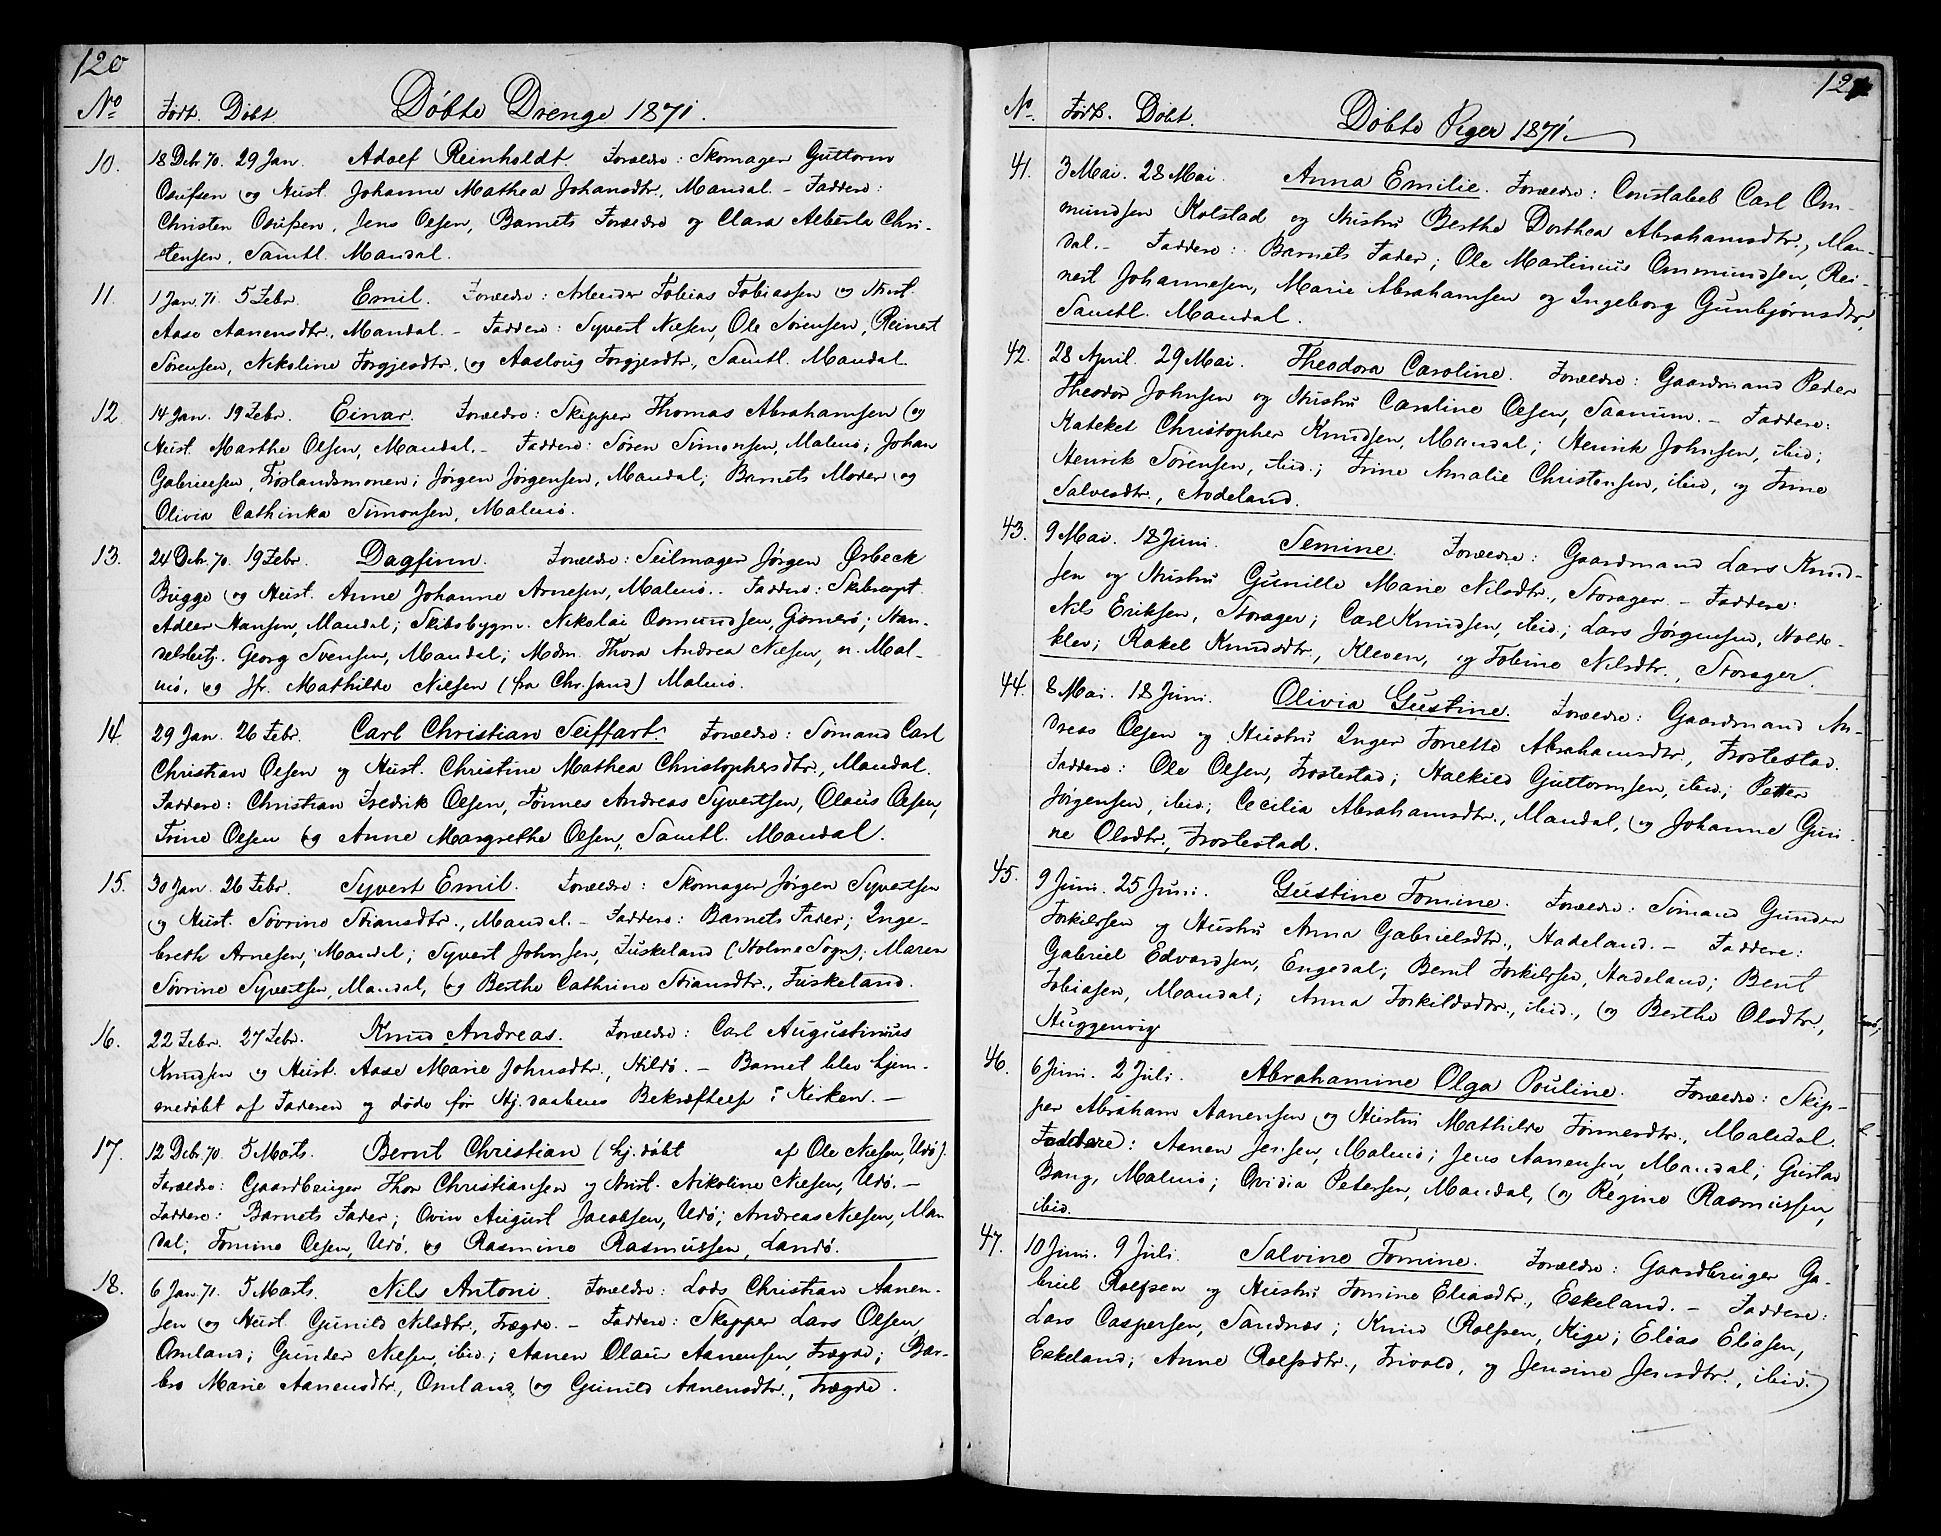 120
No Født. Døbt. Døbte Drenge 1871.
10. 18 Dcbr 70. 29 Jan. Adolf Reinholdt. Forældre: Skomager Guttorm
Osufsen og Hust. Johanne Mathea Johansdtr., Mandal. – Faddere:
Christen Osufsen, Jens Olsen, Barnets Forældre og Clara Alberta Chri-
stensen, Samtl. Mandal.
11. 1 Jan. 71. 5 Febr. Emil. Forældre: Arbeider Tobias Tobiassen og Hust.
Aase Aanensdtr., Mandal. – Faddere: Syvert Nielsen, Ole Sørensen, Reinert
Sørensen, Nikoline Torgjesdtr. og Aasloug Torgjesdtr., Samtl. Mandal
12 14 Jan. 19 Febr. Einar. Forældre: Skipper Thomas Abrahamsen og
Hust. Marthe Olsen, Mandal. – Faddere: Søren Simonsen, Malmø; Johan
Gabrielsen, Frøslandsmonen; Jørgen Jørgensen, Mandal; Barnets Moder og
Olivia Cathinka Simonsen, Malmø.
13. 24 Dcbr. 70. 19 Febr. Dagfinn. Forældre: Seilmager Jørgen Øsbeck
Bugge og Hust. Anne Johanne Arnesen, Malmø. – Faddere: Skibscapt.
Adler Hansen, Mandal; Skibsbygm. Nikolai Osmundsen, Gismerø; Han-
delsbetj. Georg Svensen, Mandal; Mdm. Thora Andrea Nielsen, n. Mal-
mø, og Jfr. Mathilde Nielsen (fra Chr.sand) Malmø.
14. 29 Jan. 26 Febr. Carl Christian Seiffart. Forældre: Sømand Carl
Christian Olsen og Hust. Christine Mathea Christophersdtr., Mandal.
Faddere: Christian Fredrik Olsen, Tønnes Andreas Syvertsen, Olaus Olsen,
Trine Olsen og Anne Margrethe Olsen, Samtl. Mandal.
15. 30 Jan. 26 Febr. Syvert Emil. Forældre: Skomager Jørgen Syvertsen
og Hust. Søvrine Stiansdtr., Mandal. – Faddere: Barnets Fader; Inge-
breth Arnesen, Mandal; Syvert Johnsen, Fuskeland (Holme Sogn); Maren
Søvrine Syvertsen, Mandal, og Berthe Cathrine Stiansdtr., Fuskeland.
16. 22 Febr. 27 Febr. Knud Andreas. Forældre: Carl Augustinius
Knudsen og Hust. Aase Marie Johnsdtr., Hildø. – Barnet blev hjem-
medøbt af Faderen og døde før Hj.daabens Bekræftelse i Kirken. –
17. 12 Dcbr. 70. 5 Marts. Bernt Christian (hj. døbt af Ole Nielsen, Udø).
Forældre: Gaardbruger Thor Christiansen og Hust. Nikoline Nielsen, Udø. –
Faddere: Barnets Fader; Ovin August Jacobsen, Udø; Andreas Nielsen, Man-
dal; Tomine Olsen, Udø, og Rasmine Rasmussen, Landø.
18. 6 Jan. 71. 5 Marts. Nils Antoni. Forældre: Lods Christian Aanen-
sen og Hust. Gunild Nilsdtr., Trægde. – Faddere: Skipper Lars Olsen,
Omland; Gunder Nielsen, ibid.; Aanen Olaus Aanensen, Trægde; Bar-
bro Marie Aanensdtr., Omland, og Gunild Aanensdtr., Trægde.
121
No. Født. Døbt. Døbte Piger 1871.
41. 3 Mai. 28 Mai. Anna Emilie. Forældre: Constabel Carl Om-
mundsen Kolstad og Hustru Berthe Dorthea Abrahamsdtr., Man-
dal. – Faddere: Barnets Fader; Ole Martinius Ommundsen, Rei-
nert Johannesen, Marie Abrahamsen og Ingeborg Gunbjørnsdtr.,
Samtl. Mandal.
42. 28 April. 29 Mai. Theodora Caroline. Forældre: Gaardmand Peder
Theodor Johnsen og Hustru Caroline Olsen, Saanum. – Faddere:
Kateket Christopher Knudsen, Mandal; Henrik Johnsen, ibid;
Henrik Sørensen, ibid.; Trine Amalie Christensen, ibid, og Trine
Salvesdtr., Aodeland.
43. 9 Mai. 18 Juni. Semine. Forældre: Gaardmand Lars Knud-
sen og Hustru Gunille Marie Nilsdtr., Storager. – Faddere:
Nils Eriksen, Storager; Carl Knudsen, ibid; Lars Jørgensen, Holde-
klev; Rakel Knudsdtr., Kleven, og Tobine Nilsdtr., Storager.
44. 8 Mai. 18 Juni. Olivia Gustine. Forældre: Gaardmand An-
dreas Olsen og Hustru Inger Tonette Abrahamsdtr., Frostestad.
Faddere: Ole Olsen, Frostestad; Halkild Guttormsen, ibid; Petter
Jørgensen, ibid; Cecilia Abrahamsdtr., Mandal, og Johanne Guri-
ne Olsdtr., Frostestad.
45. 9 Juni. 25 Juni. Gustine Tomine. Forældre: Sømand Gunder
Torkildsen og Hustru Anna Gabrielsdtr., Hadeland. – Faddere:
Gabriel Edvardsen, Engedal; Bernt Torkildsen, Hadeland; Bent
Tobiasen, Mandal; Anna Torkildsdtr., ibid., og Berthe Olsdtr.,
Huggenvig
46. 6 Juni. 2 Juli. Abrahamine Olga Pouline. Forældre: Skip-
per Abraham Aanensen og Hustru Mathilde Tønnesdtr., Mandal.
Faddere: Aanen Jensen, Malmø; Jens Aanensen, Mandal; Gustav
Bang, Malmø; Ovidia Petersen, Mandal, og Regine Rasmussen,
ibid.
47. 10 Juni. 9 Juli. Salvine Tomine. Forældre: Gaardbruger Ga-
briel Rolfsen og Hustru Tomine Eliasdtr., Eskeland. – Faddere:
Lars Caspersen, Sandnæs; Knud Rolfsen, Kige; Elias Eliasen,
Eskeland; Anne Rolfsdtr., Trivold, og Jensine Jensdtr., ibid.